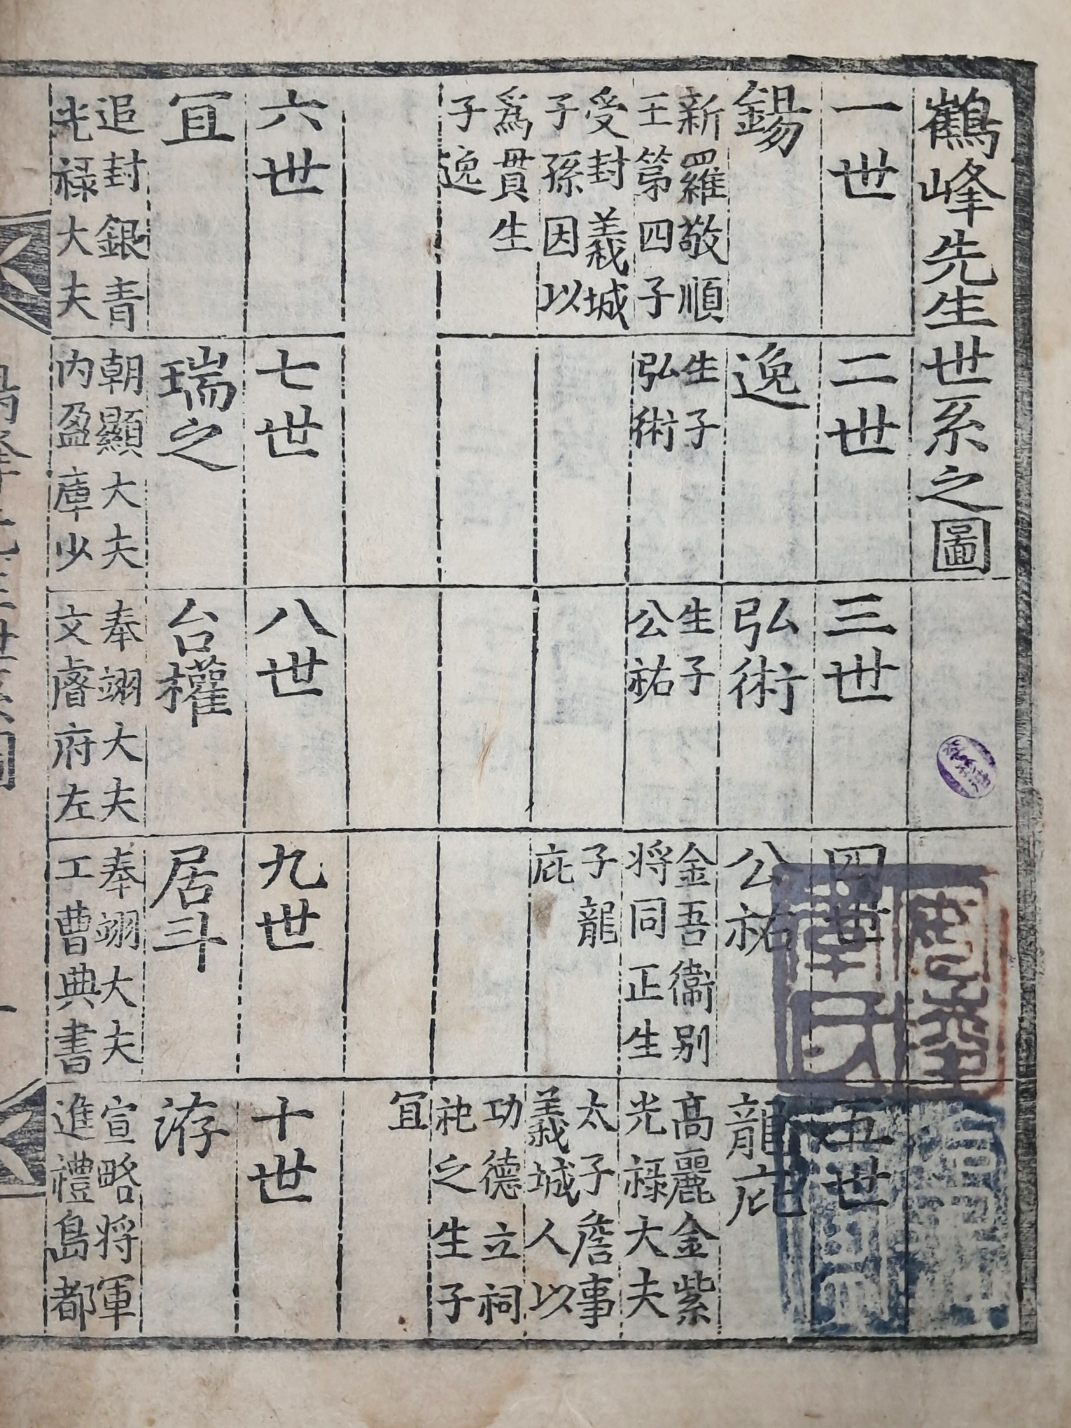 鶴峰先生世系之圖
一世
錫
新羅敬順
王第四子
受封義城
子孫因以
爲貫生
子逸
二世
逸
生子
弘術
三世
弘術
生子
公祐
四世
公祐
金吾衞别
将同正生
子龍
庇
五世
龍庇
高麗金紫
光禄大夫
太子詹事
義城人以
功德立祠
祀之生子
冝
六世
冝
追封銀青
光禄大夫
七世
瑞之
朝顯大夫
内盈庫少
八世
台權
奉翊大夫
文睿府左
九世
居斗
奉翊大夫
工曹典書
十世
洊
宣略将軍
進禮島都